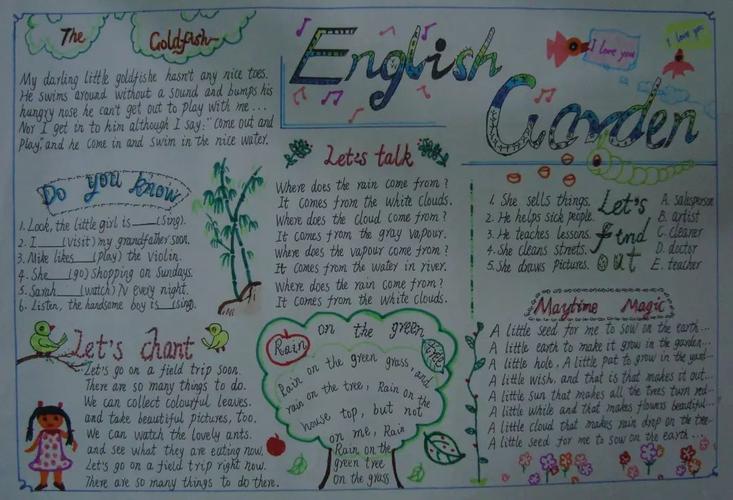 The Goldfish
My darling little goldfishe hasn't any nice toes.
He swims around without a sound and bumps his
hungry nose he can't get out to play with me...
Nor I get in to him although I say: "come out and
Play", and he come in and swim in the nice water.
English
Garden
I love you
I love you
Do you know
1. Look, the little girl is ___ (sing).
2. I ___ (visit) my grandfather soon.
3. Mike likes ___ (play) the violin.
4. She ___ (go) shopping on Sundays.
5. Sarah ___ (watch) TV every night.
6. Listen, the handsome boy is ___ (sing).
Let's talk
Where does the rain come from?
It comes from the white clouds.
Where does the cloud come from?
It comes from the gray vapour.
Where does the vapour come from?
It comes from the water in river.
Where does the rain come from?
It comes from the white clouds.
Let's
find
out
1. She sells things.
2. He helps sick people.
3. He teaches lessons.
4. She cleans streets.
5. She draws pictures.
A. salesperson
B. artist
C. cleaner
D. doctor
E. teacher
Let's chant
Let's go on a field trip soon.
There are so many things to do.
We can collect colourful leaves.
and take beautiful pictures, too.
We can watch the lovely ants.
and see what they are eating now.
Let's go on a field trip right now.
There are so many things to do there.
Rain on the green tree
Rain on the green grass, and
rain on the tree, Rain on the
house top, but not
on me, Rain
Rain on the
green tree
on the grass
Maytime Magic
A little seed for me to sow on the earth...
A little earth to make it grow in the garden...
A little hole, A little pat to grow in the yard...
A little wish, and that is that makes it out...
A little sun that makes all the trees turn red...
A little while and that makes flowers beautiful...
A little cloud that makes rain drop on the tree...
A little seed for me to sow on the earth...